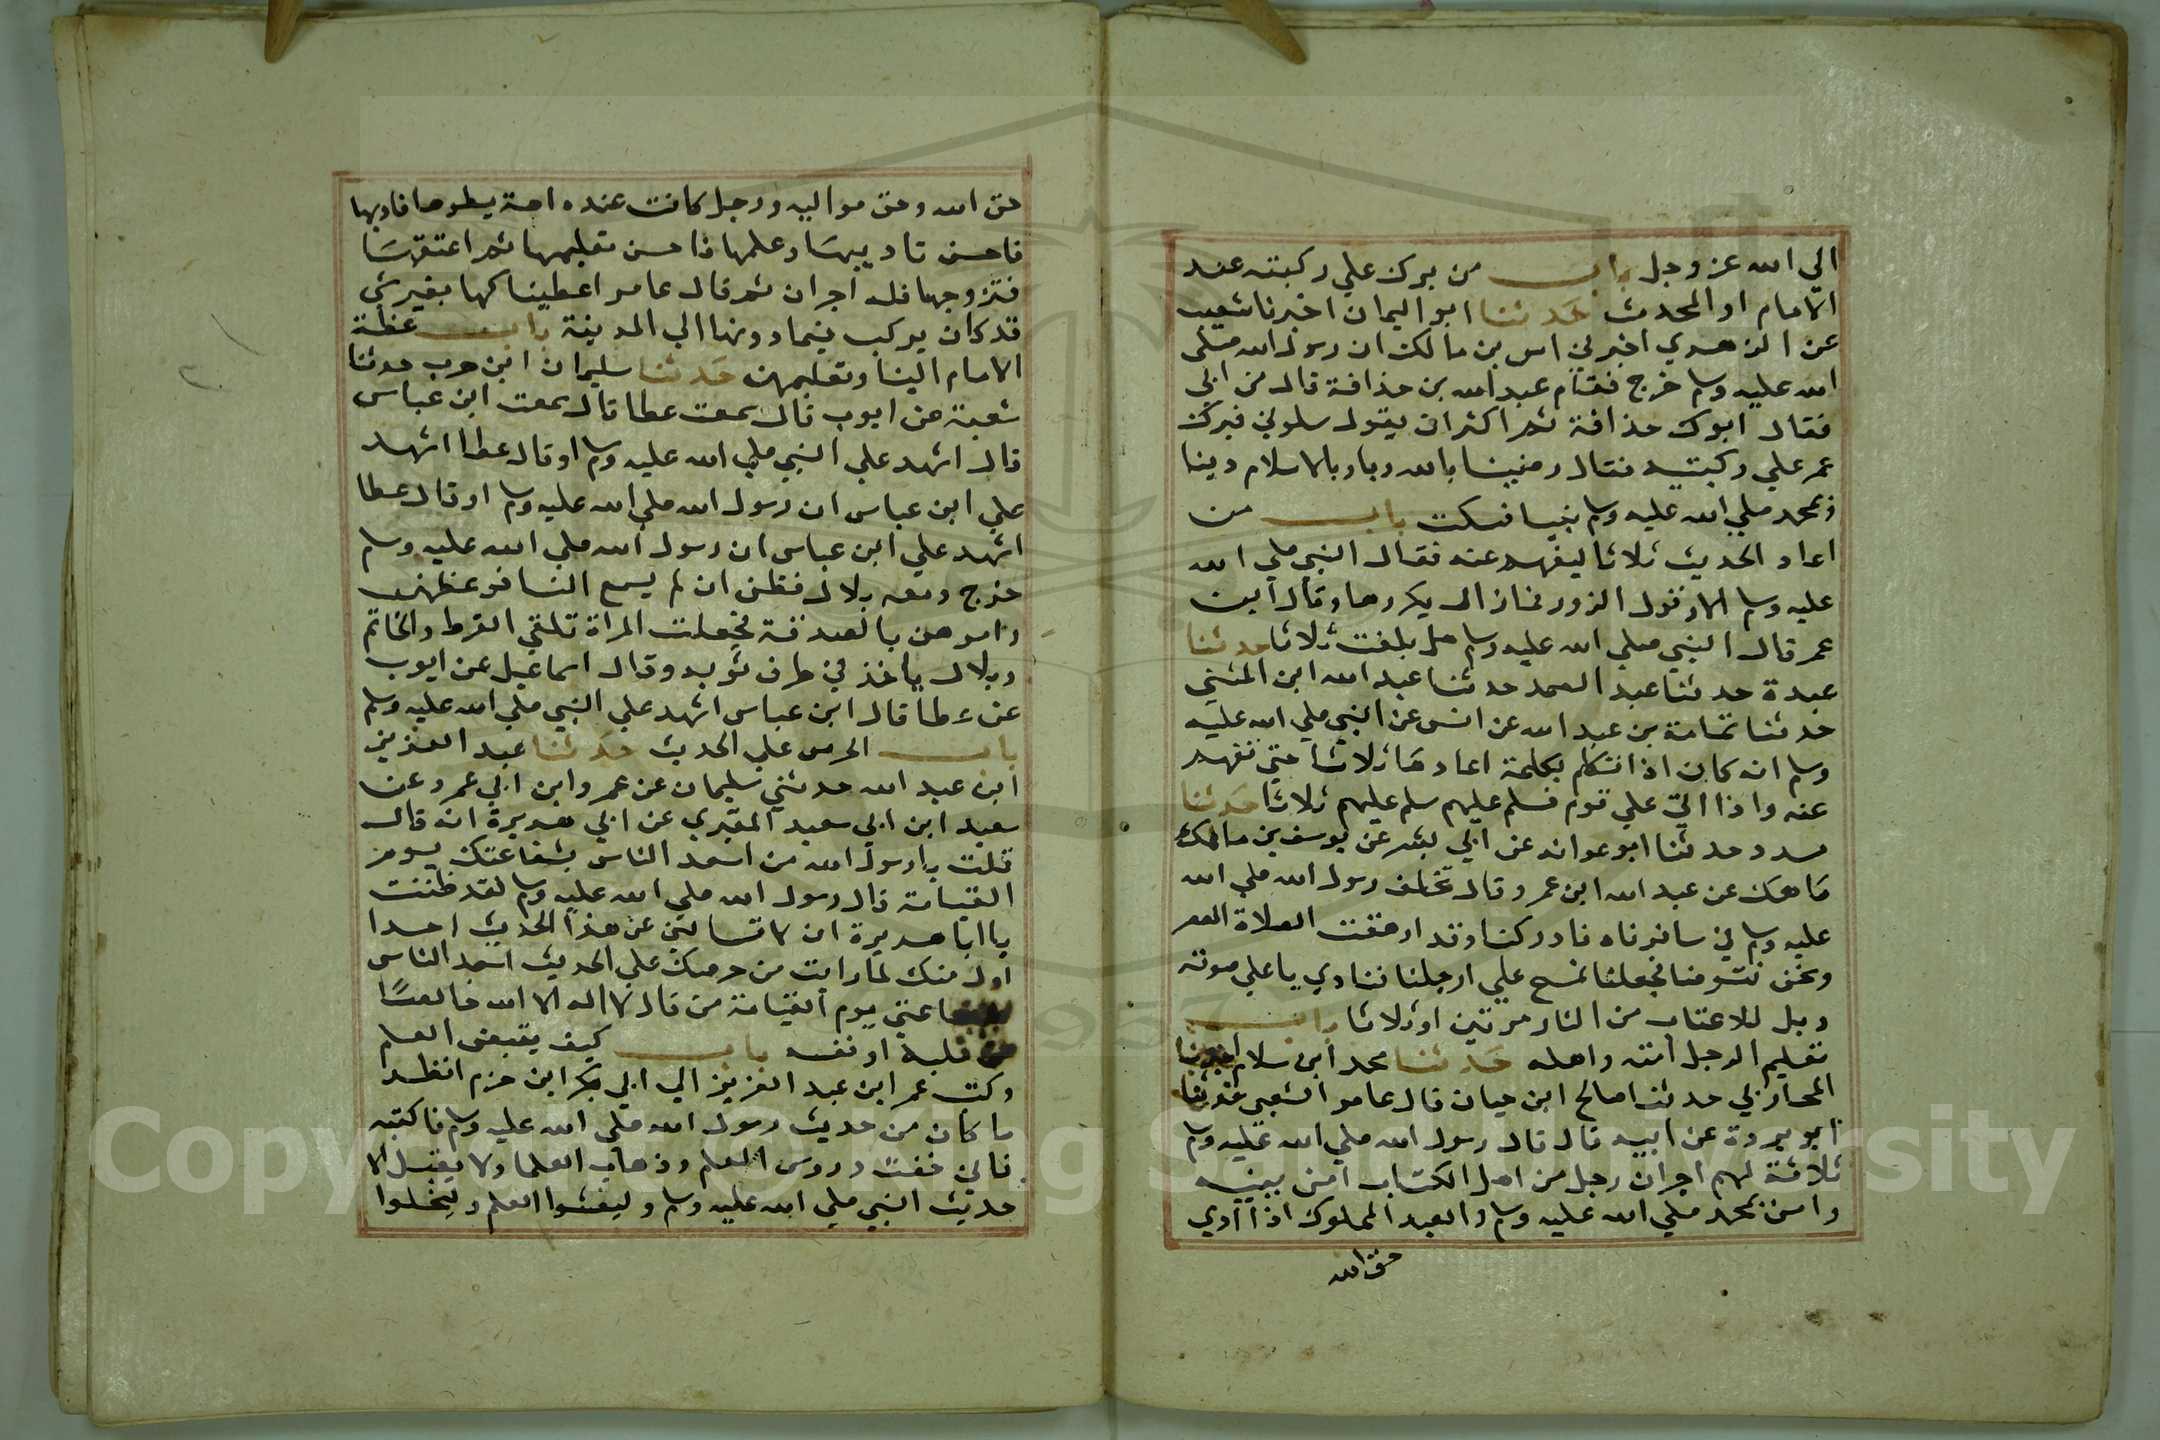 الي الله عز وجل باب من برك علي ركبته عند
الامام او المحدث حدثنا ابو اليمان اخبرنا شعيب
عن الزهري اخبرني انس بن مالك ان رسول الله صلى
الله عليه وسلم خرج فقام عبد الله بن حذافة قال من ابي
فقال ابوك حذافة ثم اكثر ان يقول سلوني فبرك
عمر علي ركبتيه فقال رضينا بالله ربا وبالاسلام دينا
وبمحمد صلي الله عليه وسلم نبيا فسكت باب من
اعاد الحديث ثلاثا ليفهم عنه فقال النبي صلي الله
عليه وسلم الا وقول الزور فما زال يكررها وقال ابن
عمر قال النبي صلي الله عليه وسلم هل بلغت ثلاثا حدثنا
عبدة حدثنا عبد الصمد حدثنا عبد الله ابن المثني
حدثنا ثمامة بن عبد الله عن انس عن النبي صلي الله عليه
وسلم انه كان اذا تكلم بكلمة اعادها ثلاثا حتي تفهم
عنه واذا اتي علي قوم فسلم عليهم سلم عليهم ثلاثا حدثنا
مسدد حدثنا ابو عوانه عن ابي بشر عن يوسف بن مالك
ماهك عن عبد الله ابن عمر وقال تخلف رسول الله صلي الله
عليه وسلم في سافرناه فادركنا وقد ارهقت الصلاة العصر
ونحن نتوضا فجعلنا نمسح علي ارجلنا فنادي باعلي صوته
ويل للاعقاب من النار مرتين او ثلاثا باب
تعليم الرجل امته واهله حدثنا محمد ابن سلام اخبرنا
المحاربي حدثنا صالح ابن حيان قال عامر الشعبي حدثنا
ابو بردة عن ابيه قال قال رسول الله صلي الله عليه وسلم
ثلاثة لهم اجران رجل من اهل الكتاب امن بنبيه
وامن بمحمد صلي الله عليه وسلم والعبد المملوك اذا ادي
حق الله
حق الله وحق مواليه ورجل كانت عنده امة يطوها فادبها
فاحسن تاديبها وعلمها فاحسن تعليمها ثم اعتقها
فتزوجها فله اجران ثم قال عامر اعطيناكها بغير شي
قد كان يركب فيما دونها الي المدينة باب عظة
الامام النسا وتعليمهن حدثنا سليمان ابن حرب حدثنا
شعبة عن ايوب قال سمعت عطا قال سمعت ابن عباس
قال اشهد علي النبي صلي الله عليه وسلم او قال عطا اشهد
علي ابن عباس ان رسول الله صلي الله عليه وسلم او قال عطا
اشهد علي ابن عباس ان رسول الله صلي الله عليه وسلم
خرج ومعه بلال فظن ان لم يسمع النسا فوعظهن
وامرهن بالصدقة فجعلت المراة تلقي القرط والخاتم
وبلال ياخذ في طرف ثوبه وقال اسماعيل عن ايوب
عن عطا قال ابن عباس اشهد علي النبي صلي الله عليه وسلم
باب الحرص علي الحديث حدثنا عبد العزيز
ابن عبد الله حدثني سليمان عن عمر وابن ابي عمرو عن
سعيد ابن ابي سعيد المقبري عن ابي هريرة انه قال
قلت يا رسول الله من اسعد الناس بشفاعتك يوم
القيامة قال رسول الله صلي الله عليه وسلم لقد ظننت
يا ابا هريرة ان لا تسالني عن هذا الحديث احدا
اول منك لما رايت من حرصك علي الحديث اسعد الناس
بشفاعتي يوم القيامة من قال لا اله الا الله خالصا
من قلبه او نفسه باب كيف يقبض العلم
وكتب عمر ابن عبد العزيز الي ابي بكر ابن حزم انظر
ما كان من حديث رسول الله صلي الله عليه وسلم فاكتبه
فاني خفت دروس العلم وذهاب العلما ولا يقبل الا
حديث النبي صلي الله عليه وسلم وليفشوا العلم وليجلسوا
Copyright © King Saud University